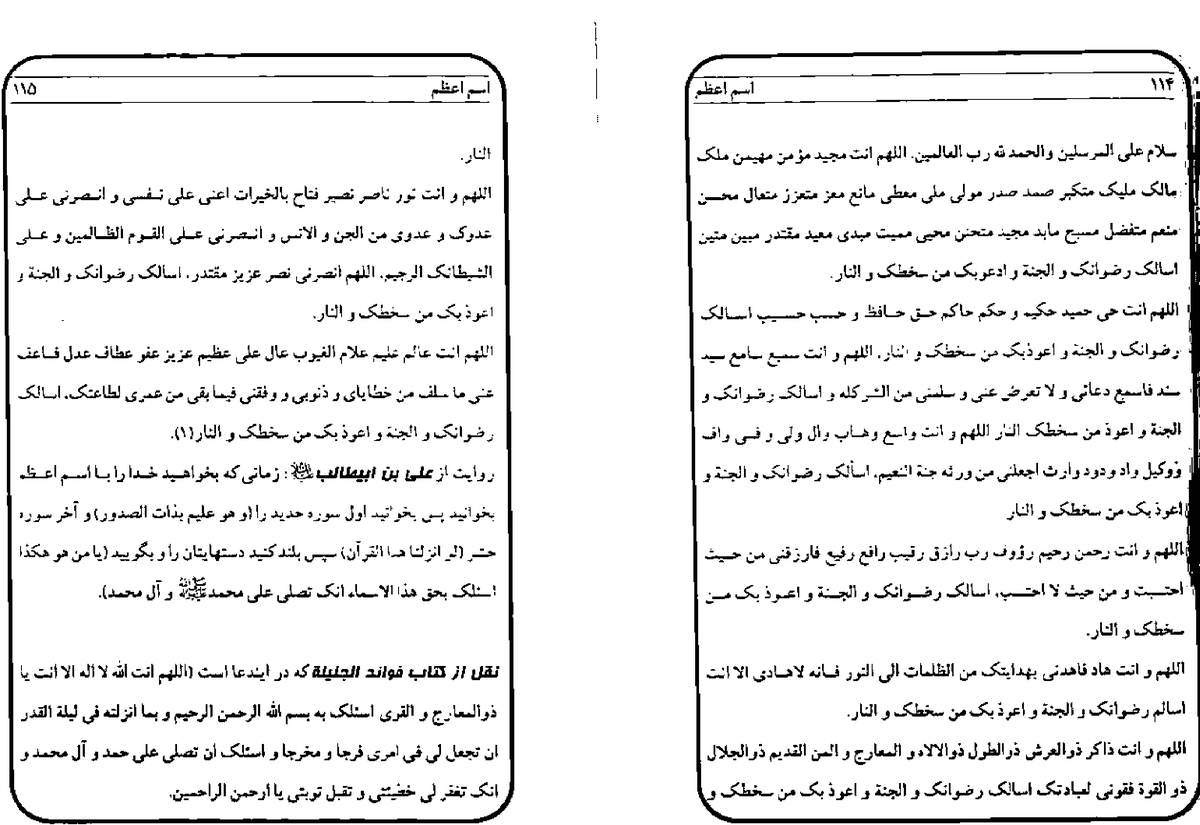 ۱۱۴
اسم اعظم
سلام علی المرسلین والحمدلله رب العالمین. اللهم انت مجید مؤمن مهیمن ملک
مالک ملیک متکبر صمد صدر مولی ملی معطی مانع معز متعزز متعال محسن
منعم متفضل مسبح ماید مجید متحنن محیی ممیت مبدی معید مقتدر مبین متین
اسالک رضوانک و الجنة و ادعوبک من سخطک و النار.
اللهم انت حی حمید حکیم و حکم حاکم حق حافظ و حسب حسیب اسالک
رضوانک و الجنة و اعوذبک من سخطک و النار، اللهم و انت سمیع سامع سید
سند فاسمع دعائی و لا تعرض عنی و سلمنی من الشر کله و اسالک رضوانک و
الجنة و اعوذ من سخطک النار اللهم و انت واسع وهاب وال ولی و فی واف
ووکیل واد ودود وارث اجعلنی من ورثه جنة النعیم، اسألک رضوانک و الجنة و
اعوذ بک من سخطک و النار
اللهم و انت رحمن رحیم رؤوف رب رازق رقیب رافع رفیع فارزقنی من حیث
احتسبت و من حیث لا احتسب، اسالک رضوانک و الجنة و اعوذ بک من
سخطک و النار.
اللهم و انت هاد فاهدنی بهدایتک من الظلمات الی النور فانه لاهادی الا انت
اسالم رضوانک و الجنة و اعوذ بک من سخطک و النار.
اللهم و انت ذاکر ذوالعرش ذالطول ذوالالاء و المعارج و المن القدیم ذوالجلال
ذو القوة فقونی لعبادتک اسالک رضوانک و الجنة و اعوذ بک من سخطک و
اسم اعظم
۱۱۵
النار.
اللهم و انت نور ناصر نصیر فتاح بالخیرات اعنی علی نفسی و انصرنی علی
عدوک و عدوی من الجن و الانس و انصرنی علی القوم الظالمین و علی
الشیطانک الرجیم، اللهم انصرنی نصر عزیز مقتدر، اسالک رضوانک و الجنة و
اعوذ بک من سخطک و النار.
اللهم انت عالم علیم علام الغیوب عال علی عظیم عزیز عفو عطاف عدل فاعف
عنی ما سلف من خطایای و ذنوبی و وفقنی فیما بقی من عمری لطاعتک، اسالک
رضوانک و الجنة و اعوذ بک من سخطک و النار(۱).
روایت از علی بن ابیطالب علیه السلام: زمانی که بخواهید خدا را با اسم اعظم
بخوانید پس بخوانید اول سوره حدید را (و هو علیم بذات الصدور) و آخر سوره
حشر (لو انزلنا هذا القرآن) سپس بلند کنید دستهایتان را و بگویید (یا من هو هکذا
اسئلک بحق هذا الاسماء انک تصلی علی محمد ﷺ و آل محمد).
نقل از کتاب فوائد الجلیلة که در ایندعا است (اللهم انت الله لا اله الا انت یا
ذوالمعارج و القری اسئلک به بسم الله الرحمن الرحیم و بما انزلته فی لیلة القدر
ان تجعل لی فی امری فرجا و مخرجا و اسئلک ان تصلی علی حمد و آل محمد و
انک تغفر لی خطیئتی و تقبل توبتی یا ارحمن الراحمین.